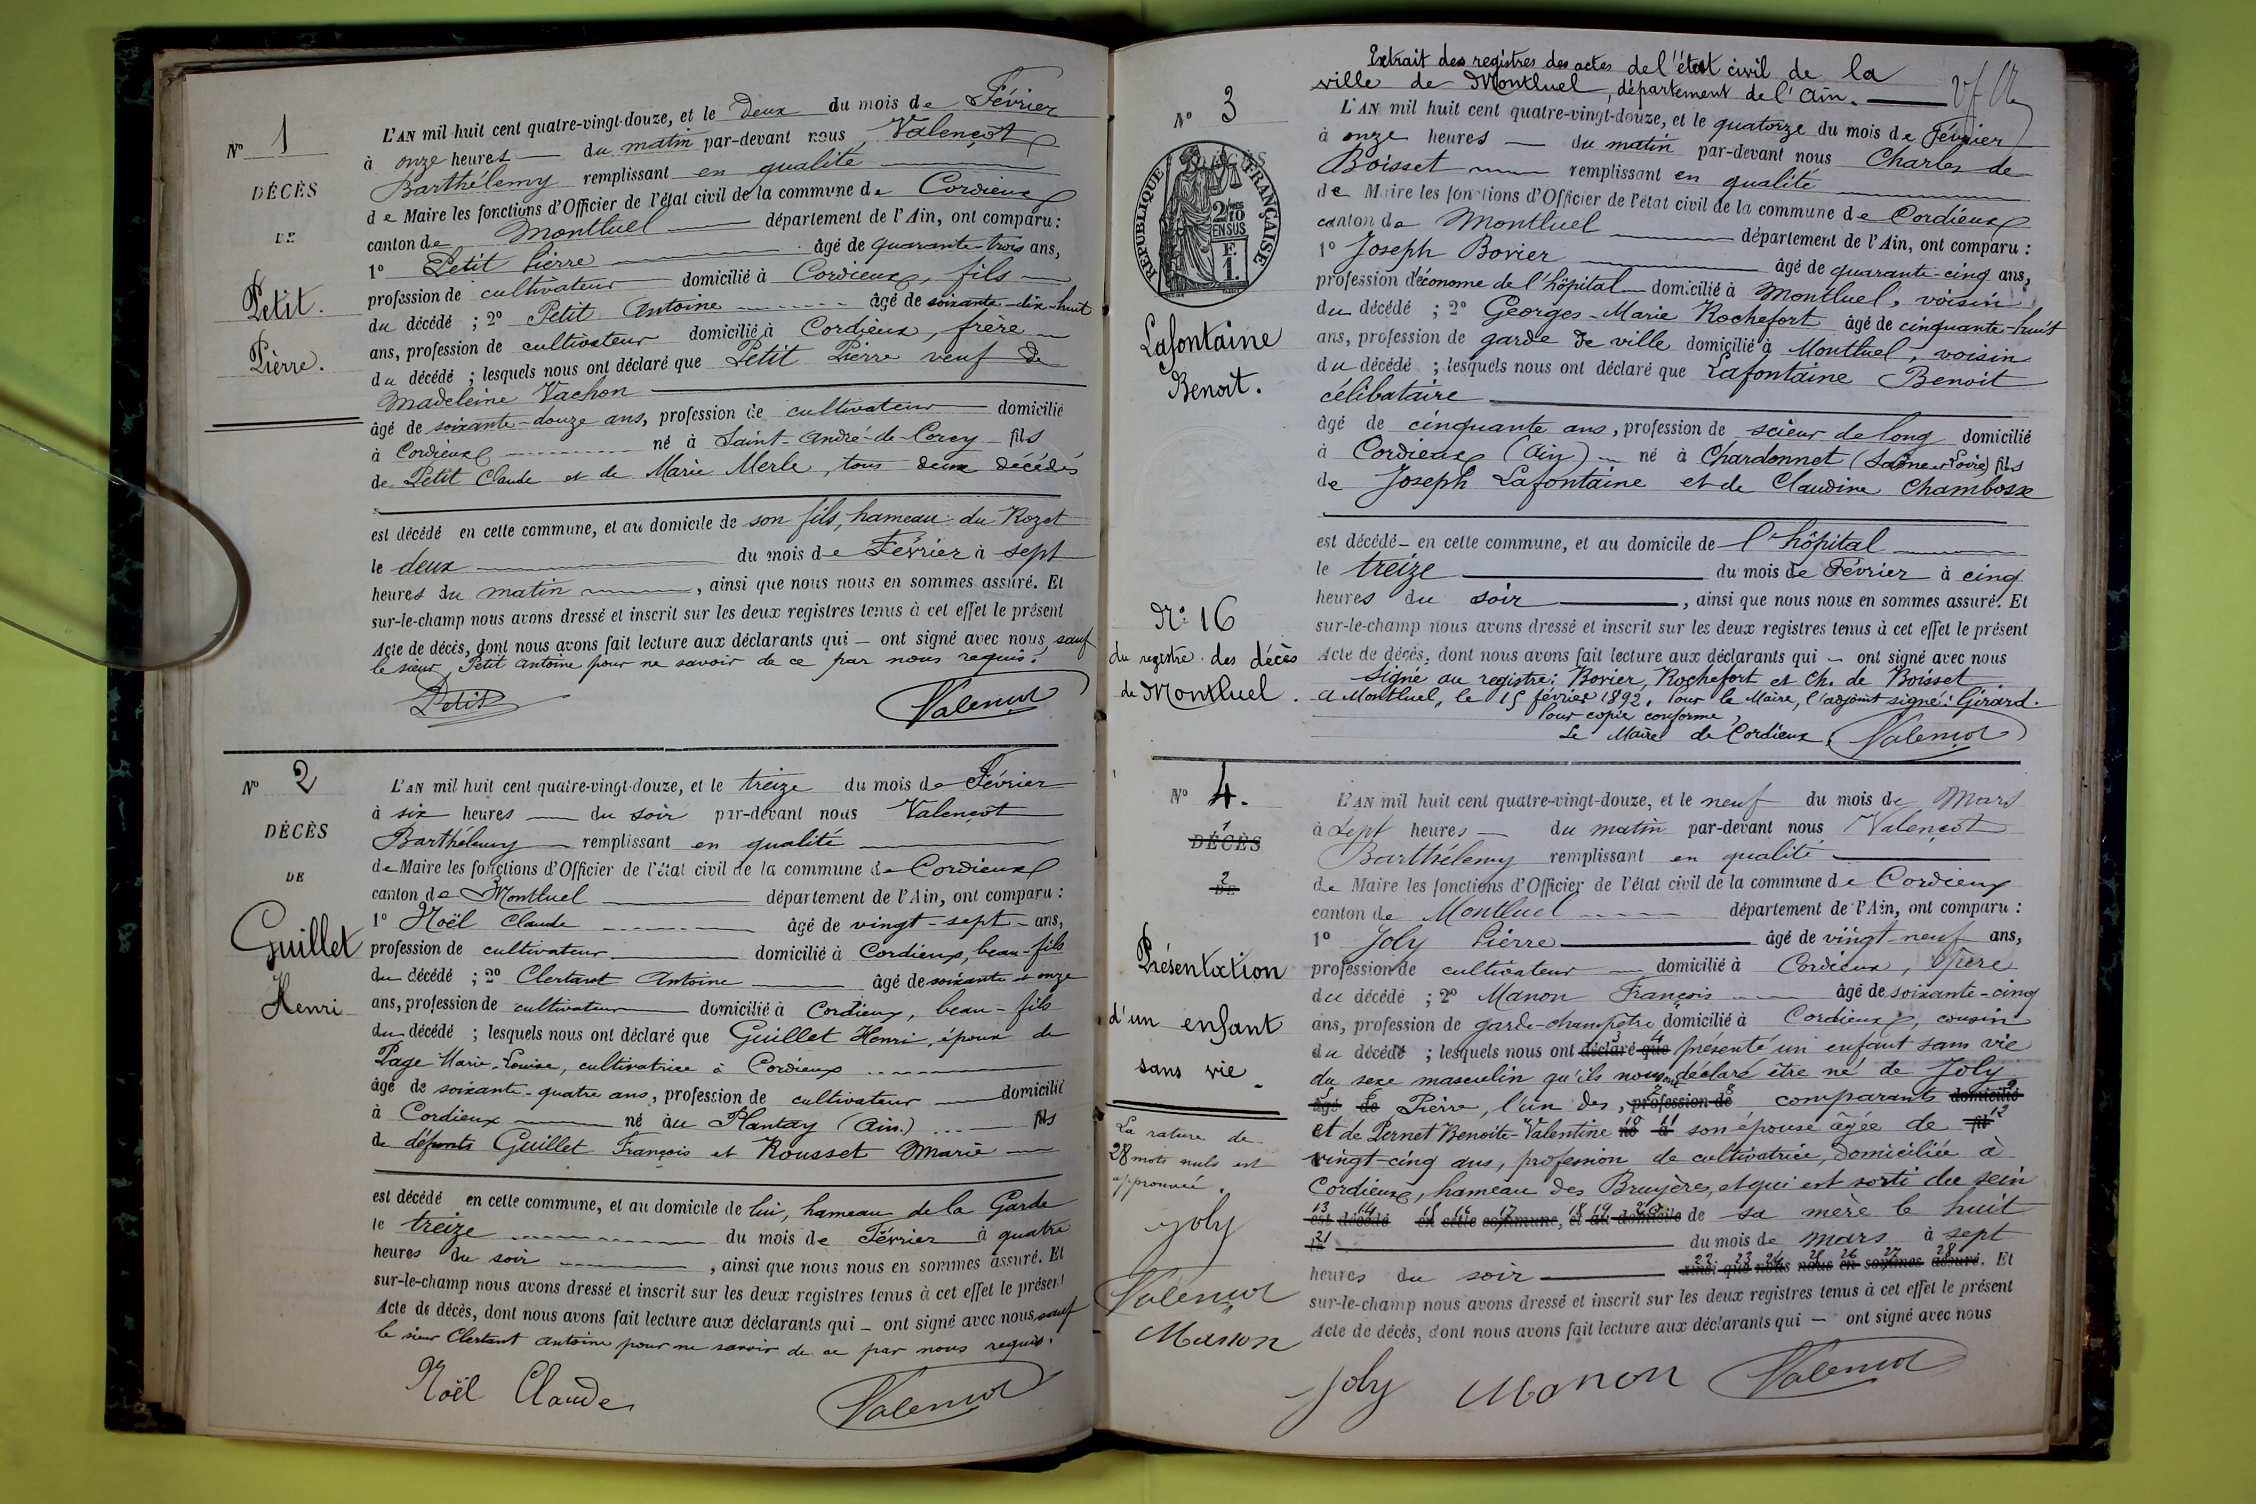 Nº 1
DÉCÈS
DE
Petit.
Pierre.
L'AN mil huit cent quatre-vingt-douze, et le deux du mois de Février
à onze heures du matin par-devant nous Valençot
Barthélemy remplissant en qualité
de Maire les fonctions d'Officier de l'état civil de la commune de Cordieux
canton de Montluel département de l'Ain, ont comparu :
1º Petit Pierre âgé de quarante-trois ans,
profession de cultivateur domicilié à Cordieux, fils
du décédé ; 2º Petit Antoine âgé de soixante-dix-huit
ans, profession de cultivateur domicilié à Cordieux, frère
du décédé ; lesquels nous ont déclaré que Petit Pierre veuf de
Madeleine Vachon
âgé de soixante-douze ans, profession de cultivateur domicilié
à Cordieux né à Saint-André-de-Corcy fils
de Petit Claude et de Marie Merle, tous deux décédés
est décédé en cette commune, et au domicile de son fils, hameau du Rozet
le deux du mois de Février à sept
heures du matin , ainsi que nous nous en sommes assuré. Et
sur-le-champ nous avons dressé et inscrit sur les deux registres tenus à cet effet le présent
Acte de décès, dont nous avons fait lecture aux déclarants qui – ont signé avec nous, sauf
le sieur Petit Antoine pour ne savoir de ce par nous requis.
Petit Valençot
Nº 2
DÉCÈS
DE
Guillet
Henri
L'AN mil huit cent quatre-vingt-douze, et le treize du mois de Février
à six heures du soir par-devant nous Valençot
Barthélemy remplissant en qualité
de Maire les fonctions d'Officier de l'état civil de la commune de Cordieux
canton de Montluel département de l'Ain, ont comparu :
1º Noël Claude âgé de vingt-sept ans,
profession de cultivateur domicilié à Cordieux, beau-fils
du décédé ; 2º Clertant Antoine âgé de soixante et onze
ans, profession de cultivateur domicilié à Cordieux, beau-fils
du décédé ; lesquels nous ont déclaré que Guillet Henri, époux de
Page Marie-Louise, cultivatrice à Cordieux
âgé de soixante-quatre ans, profession de cultivateur domicilié
à Cordieux né au Plantay (Ain.) fils
de défunts Guillet François et Rousset Marie
est décédé en cette commune, et au domicile de lui, hameau de la Garde
le treize du mois de Février à quatre
heures du soir , ainsi que nous nous en sommes assuré. Et
sur-le-champ nous avons dressé et inscrit sur les deux registres tenus à cet effet le présent
Acte de décès, dont nous avons fait lecture aux déclarants qui – ont signé avec nous, sauf
le sieur Clertant Antoine pour ne savoir de ce par nous requis.
Noël Claude Valençot
Extrait des registres des actes de l'état civil de la
ville de Montluel, département de l'Ain.
Nº 3
RÉPUBLIQUE FRANÇAISE
2/10 EN SUS
F.
1.
Lafontaine
Benoit.
Nº 16
du registre des décès
de Montluel.
L'AN mil huit cent quatre-vingt-douze, et le quatorze du mois de Février
à onze heures du matin par-devant nous Charles de
Boisset remplissant en qualité
de Maire les fonctions d'Officier de l'état civil de la commune de Cordieux
canton de Montluel département de l'Ain, ont comparu :
1º Joseph Bovier âgé de quarante-cinq ans,
profession d'économe de l'hôpital domicilié à Montluel, voisin
du décédé ; 2º Georges-Marie Rochefort âgé de cinquante-huit
ans, profession de garde de ville domicilié à Montluel, voisin
du décédé ; lesquels nous ont déclaré que Lafontaine Benoit
célibataire
âgé de cinquante ans, profession de scieur de long domicilié
à Cordieux (Ain) né à Chardonnet (Saône et Loire) fils
de Joseph Lafontaine et de Claudine Chambosse
est décédé en cette commune, et au domicile de l'hôpital
le treize du mois de Février à cinq
heures du soir , ainsi que nous nous en sommes assuré. Et
sur-le-champ nous avons dressé et inscrit sur les deux registres tenus à cet effet le présent
Acte de décès, dont nous avons fait lecture aux déclarants qui – ont signé avec nous
Signé au registre: Bovier, Rochefort et Ch. de Boisset
A Montluel, le 15 février 1892. Pour le Maire, l'adjoint signé: Girard.
Pour copie conforme,
Le Maire de Cordieux, Valençot
Nº 4.
1
DÉCÈS
2
DE
Présentation
d'un enfant
sans vie.
La rature de
28 mots nuls est
approuvée.
Joly
Valençot
Manon
L'AN mil huit cent quatre-vingt-douze, et le neuf du mois de Mars
à Sept heures du matin par-devant nous Valençot
Barthélemy remplissant en qualité
de Maire les fonctions d'Officier de l'état civil de la commune de Cordieux
canton de Montluel département de l'Ain, ont comparu :
1º Joly Pierre âgé de vingt-neuf ans,
profession de cultivateur domicilié à Cordieux, père
du décédé ; 2º Manon François âgé de soixante-cinq
ans, profession de garde-champêtre domicilié à Cordieux, cousin
du décédé ; lesquels nous ont déclaré que présenté un enfant sans vie
du sexe masculin qu'ils nous ont déclaré être né de Joly
âgé de Pierre, l'un des, profession de comparants domicilié
et de Pernet Benoite-Valentine né à son épouse âgée de fil
vingt-cinq ans, profession de cultivatrice, domiciliée à
Cordieux, hameau des Bruyères, et qui est sorti du sein
est décédé en cette commune, et au domicile de sa mère le huit
le du mois de mars à sept
heures du soir ainsi que nous nous en sommes assuré. Et
sur-le-champ nous avons dressé et inscrit sur les deux registres tenus à cet effet le présent
Acte de décès, dont nous avons fait lecture aux déclarants qui – ont signé avec nous
Joly Manon Valençot